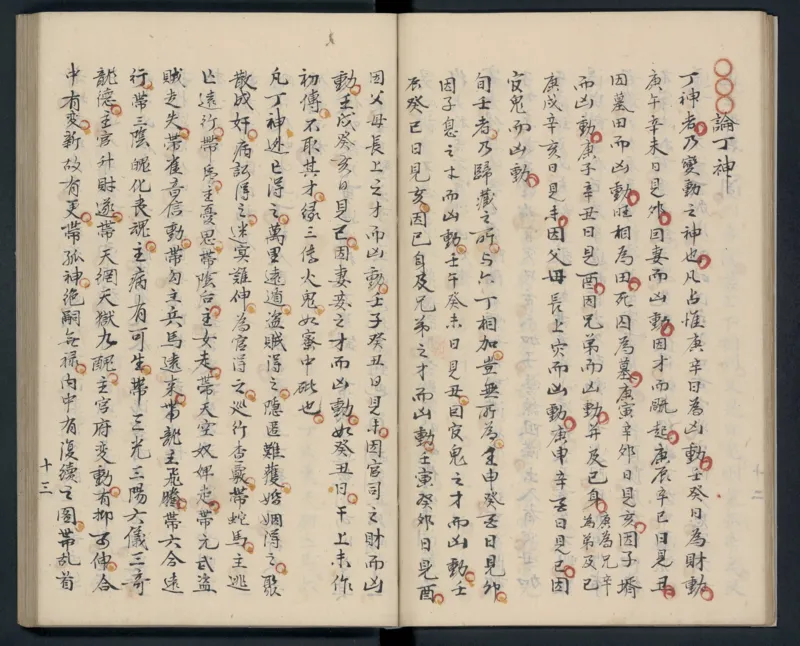 論丁神
丁神者乃變動之神也凡占惟庚辛日為凶動壬癸日為財動
庚午辛未日見卯因妻而凶動因才而賍起庚辰辛巳日見丑
因墓田而凶動旺相為田死因為墓庚寅辛卯日見亥因子壻
而凶動庚子辛丑日見酉因兄弟而凶動并及已身庚為兄辛為弟及已
庚戌辛亥日見未因父母長上灾而凶動庚申辛酉日見巳因
官鬼而凶動
旬壬者乃歸藏之所与六丁相加豈無所為壬申癸酉日見卯
因子息之才而凶動壬午癸未日見丑因官鬼之才而凶動壬
辰癸巳日見亥因已自及兄弟之才而凶動壬寅癸卯日見酉
因父母長上之才而凶動壬子癸丑日見未因官司之財而凶
動壬戌癸亥日見巳因妻妾之才而凶動如癸丑日干上未作
初傳不取其才緣三傳火鬼如蜜中砒也
凡丁神逃亡得之萬里遠遁盜賊得之隱匿難獲婚姻得之聚
散成奸病訟得之迷冥難伸為官得之巡行杳靄帶蛇馬主逃
亡遠行帶馬主憂思帶陰合主女走帶天空奴婢走帶元武盜
賊走失帶雀音信動帶勾主兵馬遠来帶龍主飛騰帶六合遠
行帶三陰魄化喪魂主病有可生帶三光三陽六儀三奇
龍德主官升財遂帶天網天獄九醜主宮府変動有抑可伸合
中有変新故有更帶孤神絶嗣無祿内中有復續之圖帶乱首
十三
十二